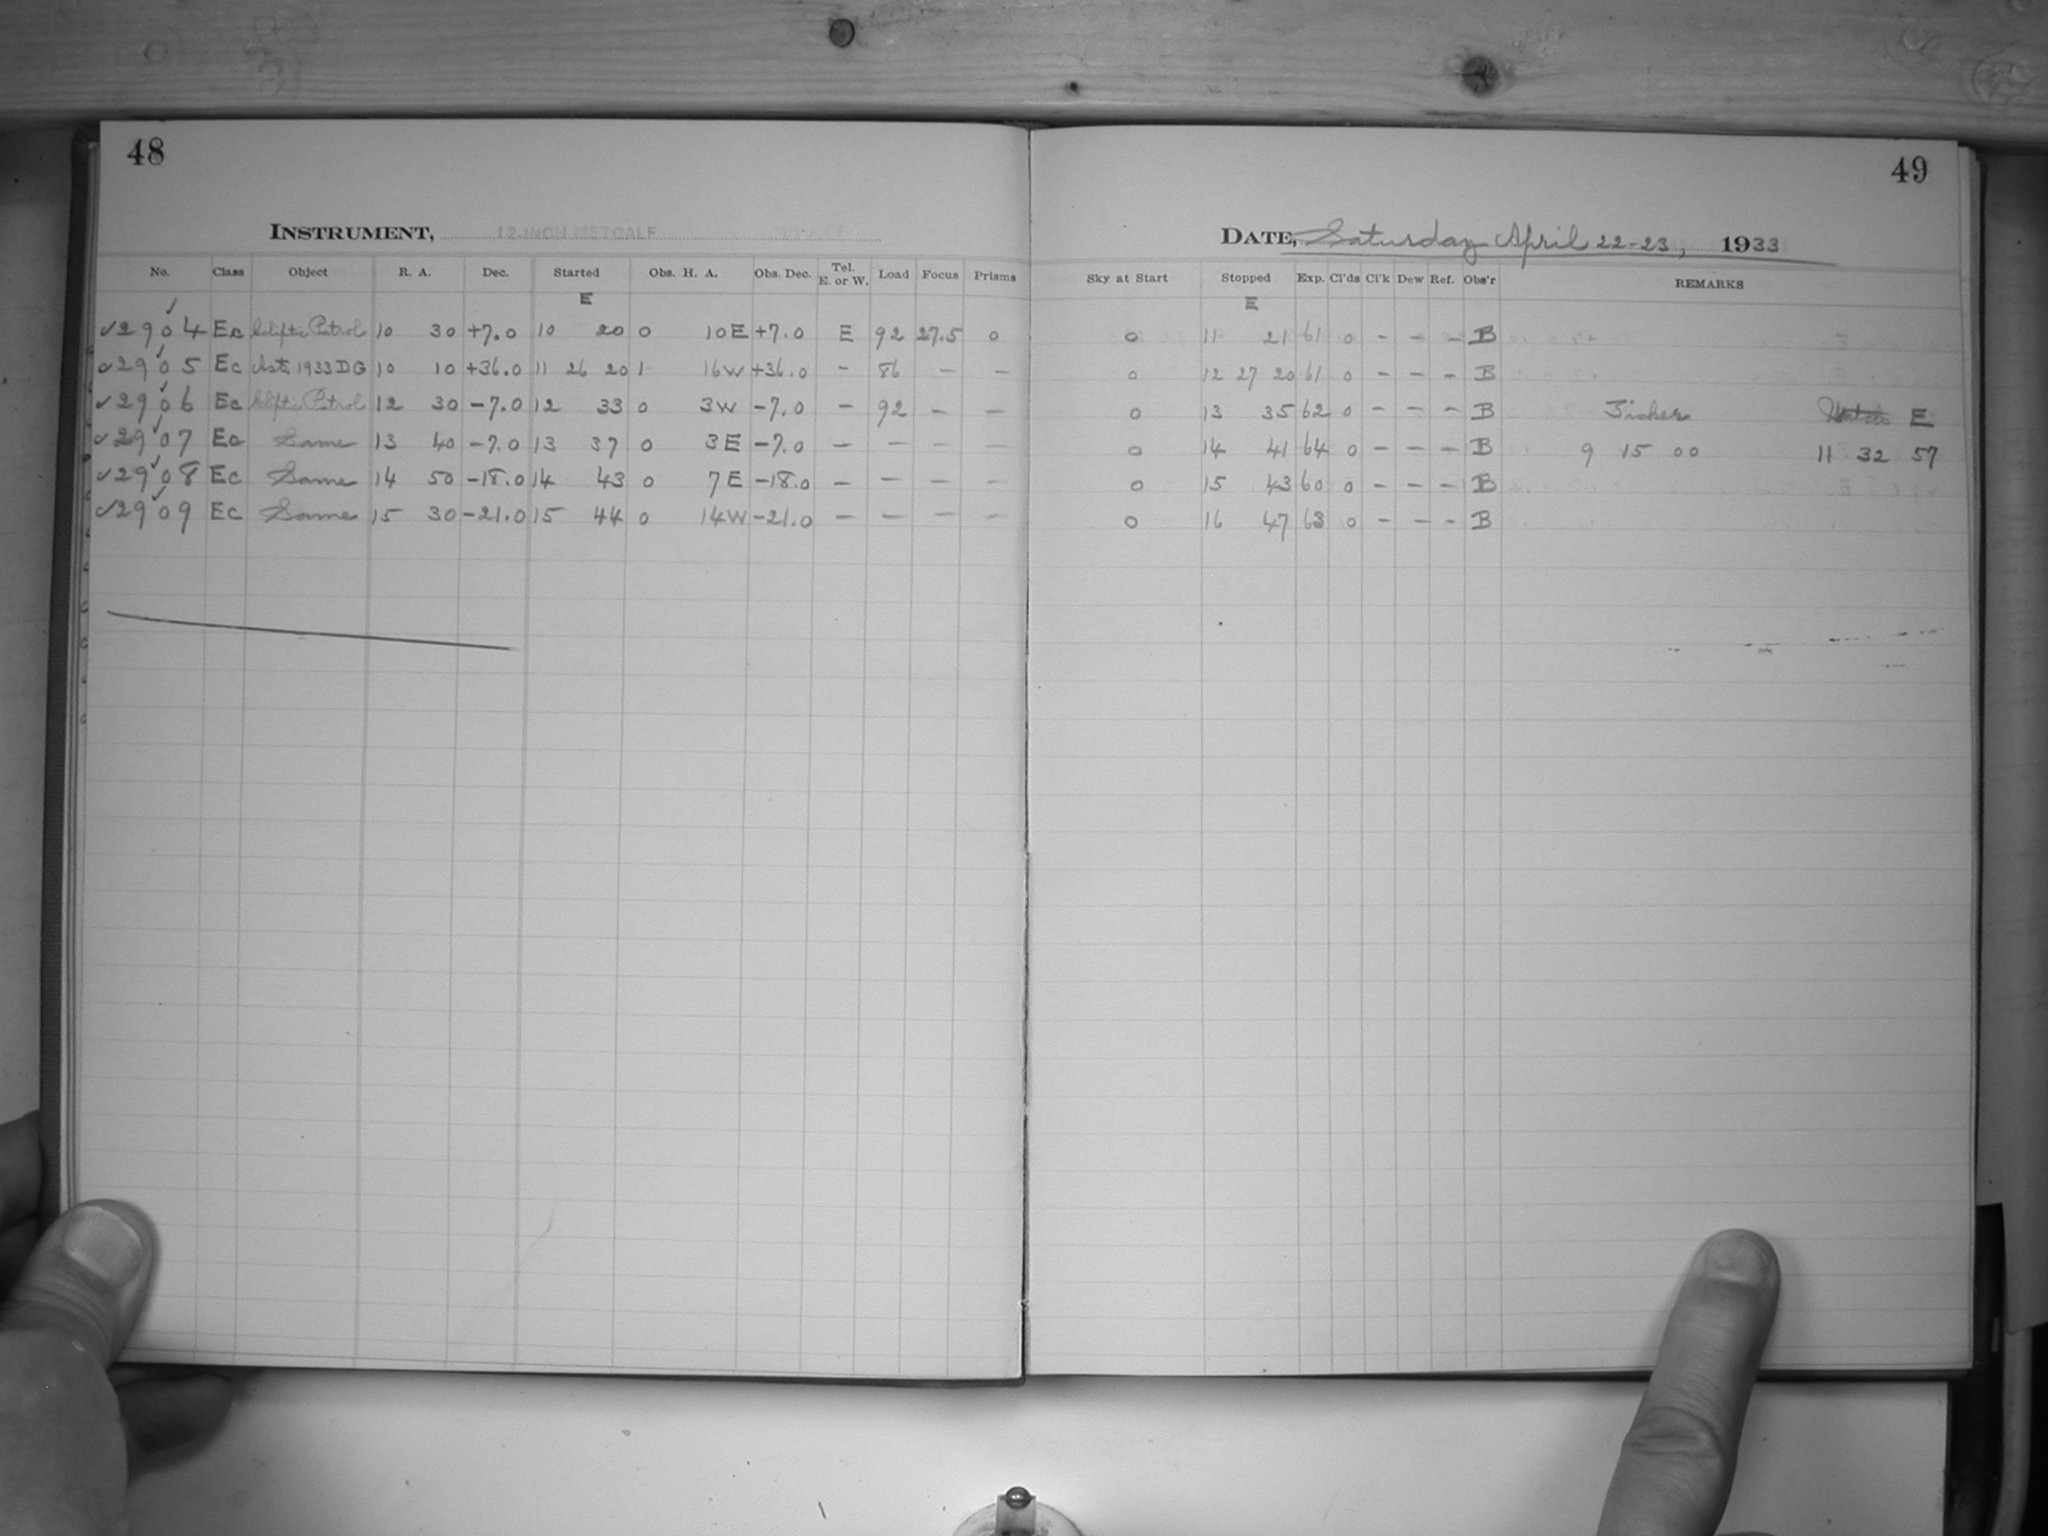 48
INSTRUMENT, 12-INCH METCALF
No. Class Object R. A. Dec. Started Obs. H. A. Obs. Dec. Tel. E. or W. Load Focus Prisms
E
✓2904 Ec Ecliptic Patrol 10 30 +7.0 10 20 0 10E +7.0 E 92 27.5 0
✓2905 Ec Ast. 1933DG 10 10 +36.0 11 26 20 1 16W +36.0 - 86 - -
✓2906 Ec Ecliptic Patrol 12 30 -7.0 12 33 0 3W -7.0 - 92 - -
✓2907 Ec Same 13 40 -7.0 13 37 0 3E -7.0 - - - -
✓2908 Ec Same 14 50 -18.0 14 43 0 7E -18.0 - - - -
✓2909 Ec Same 15 30 -21.0 15 44 0 14W -21.0 - - - -
49
DATE, Saturday April 22-23, 1933
Sky at Start Stopped Exp. Cl'ds Cl'k Dew Ref. Obs'r REMARKS
E
0 11 21 61 0 - - - B
0 12 27 20 61 0 - - - B
0 13 35 62 0 - - - B Ticker E
0 14 41 64 0 - - - B 9 15 00 11 32 57
0 15 43 60 0 - - - B
0 16 47 63 0 - - - B